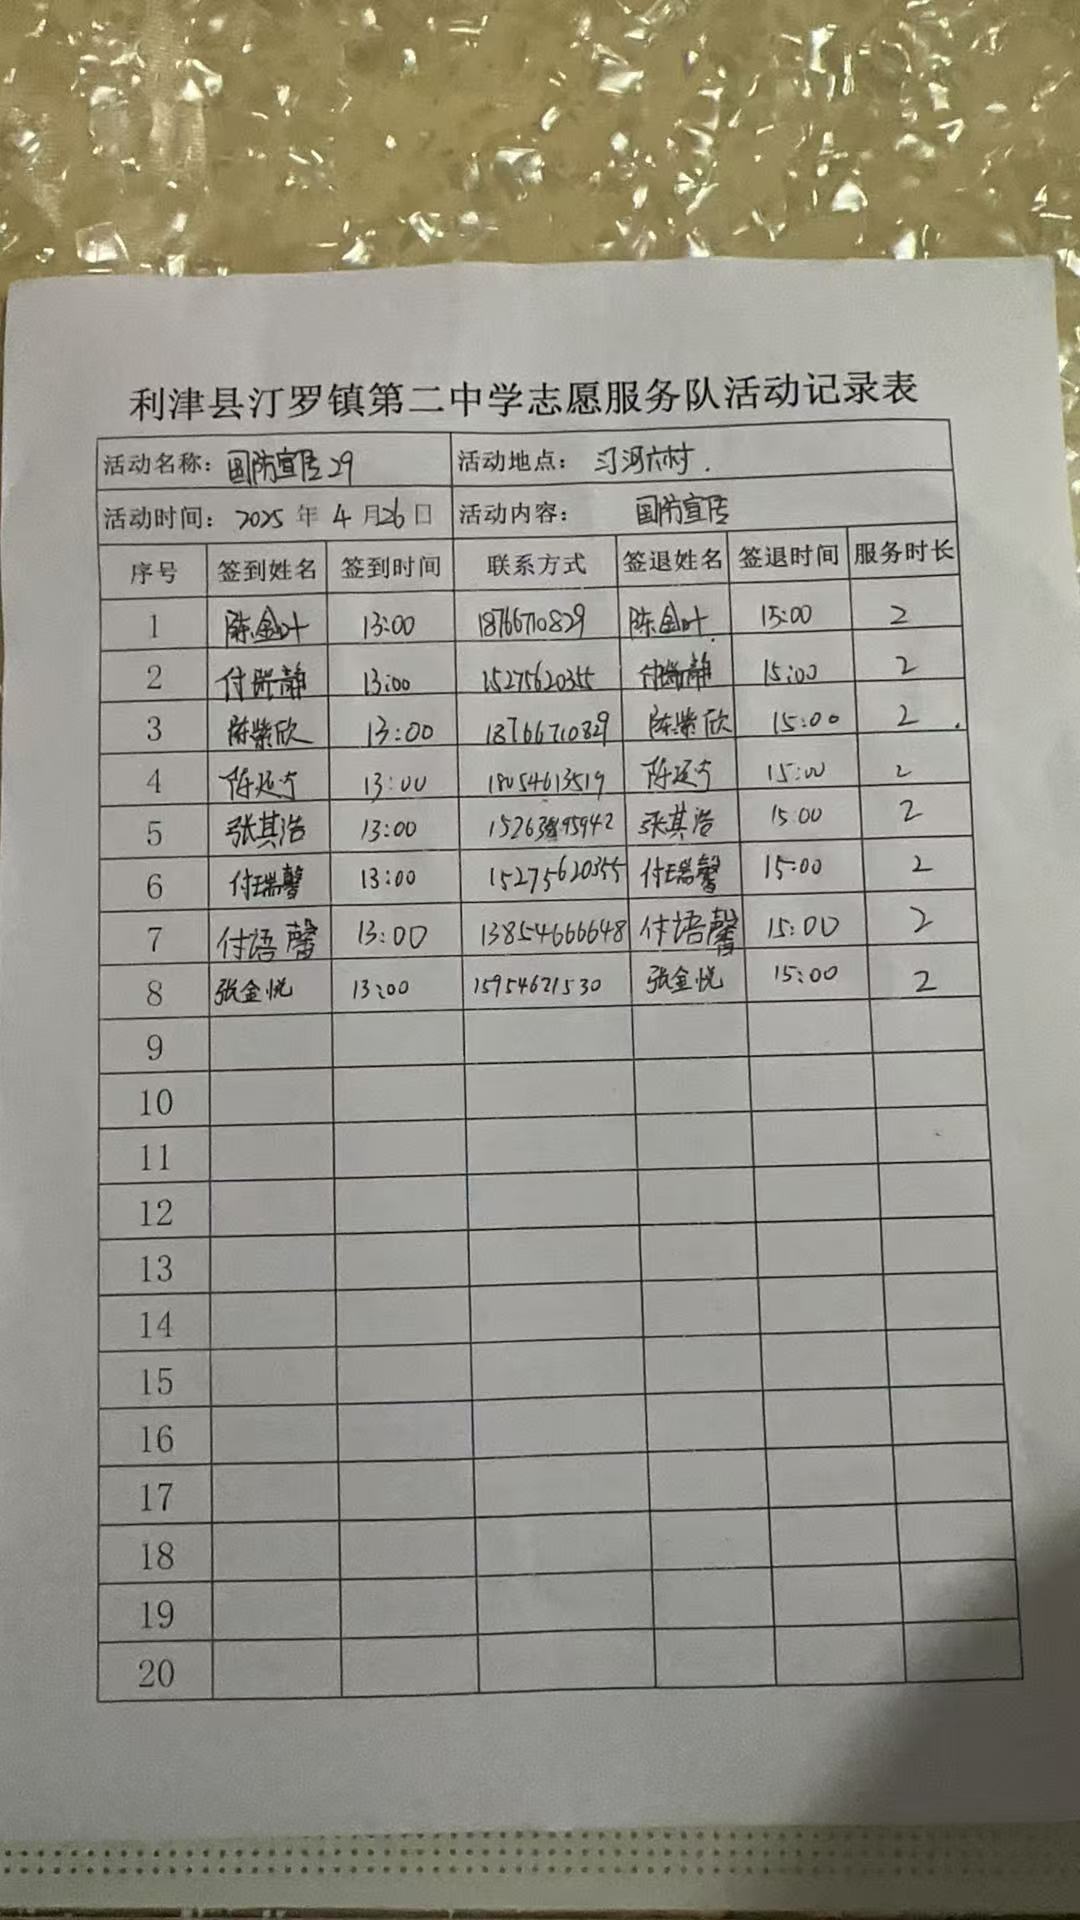 利津县汀罗镇第二中学志愿服务队活动记录表
活动名称: 国防宣传29 活动地点: 汀河六村.
活动时间: 2025年4月26日 活动内容: 国防宣传
序号 签到姓名 签到时间 联系方式 签退姓名 签退时间 服务时长
1 陈金叶 13:00 18766710829 陈金叶 15:00 2
2 付 静 13:00 15275620355 付 静 15:00 2
3 陈紫欣 13:00 18766710829 陈紫欣 15:00 2
4 陈 13:00 18054613519 陈 15:00 2
5 张其浩 13:00 张其浩 15:00 2
6 付瑞馨 13:00 15275620355 付瑞馨 15:00 2
7 付语馨 13:00 13854666648 付语馨 15:00 2
8 张金悦 13:00 15954621530 张金悦 15:00 2
9
10
11
12
13
14
15
16
17
18
19
20